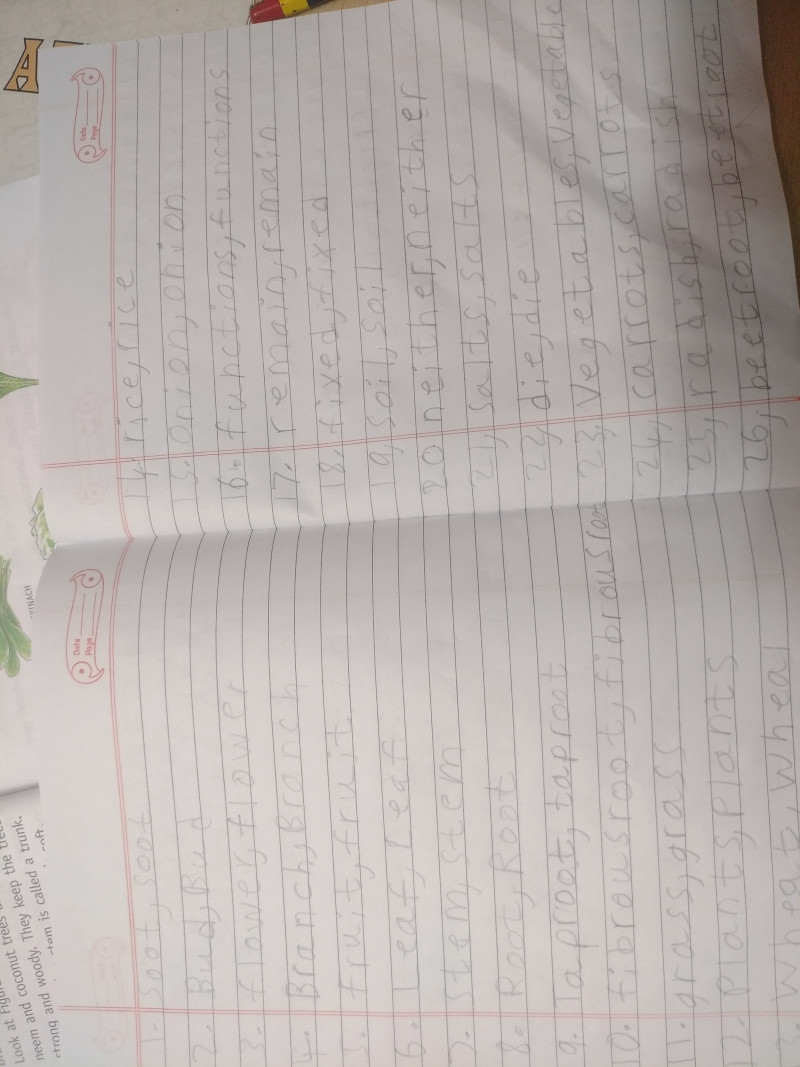 1. Soot, soot
2. Bud, Bud
3. flower, flower
4. Branch, Branch
5. fruit, fruit
6. Leaf, Leaf
7. Stem, stem
8. Root, Root
9. Taproot, taproot
10. fibrousroot, fibrousroot
11. grass, grass
12 Plants, Plants
3. Wheat, Wheat
14. rice, rice
15. Onion, onion
16. functions, functions
17. remain, remain
18. fixed, fixed
19, soil, soil
20 neither, neither
21, salts, salts
22, die, die
23, Vegetables, Vegetable
24, carrots, carrots
25, radish, radish
26, beetroot, beetroot
Date
Page
Date
Page
Look at Figure
neem and coconut trees
strong and woody. They keep the
is called a trunk.